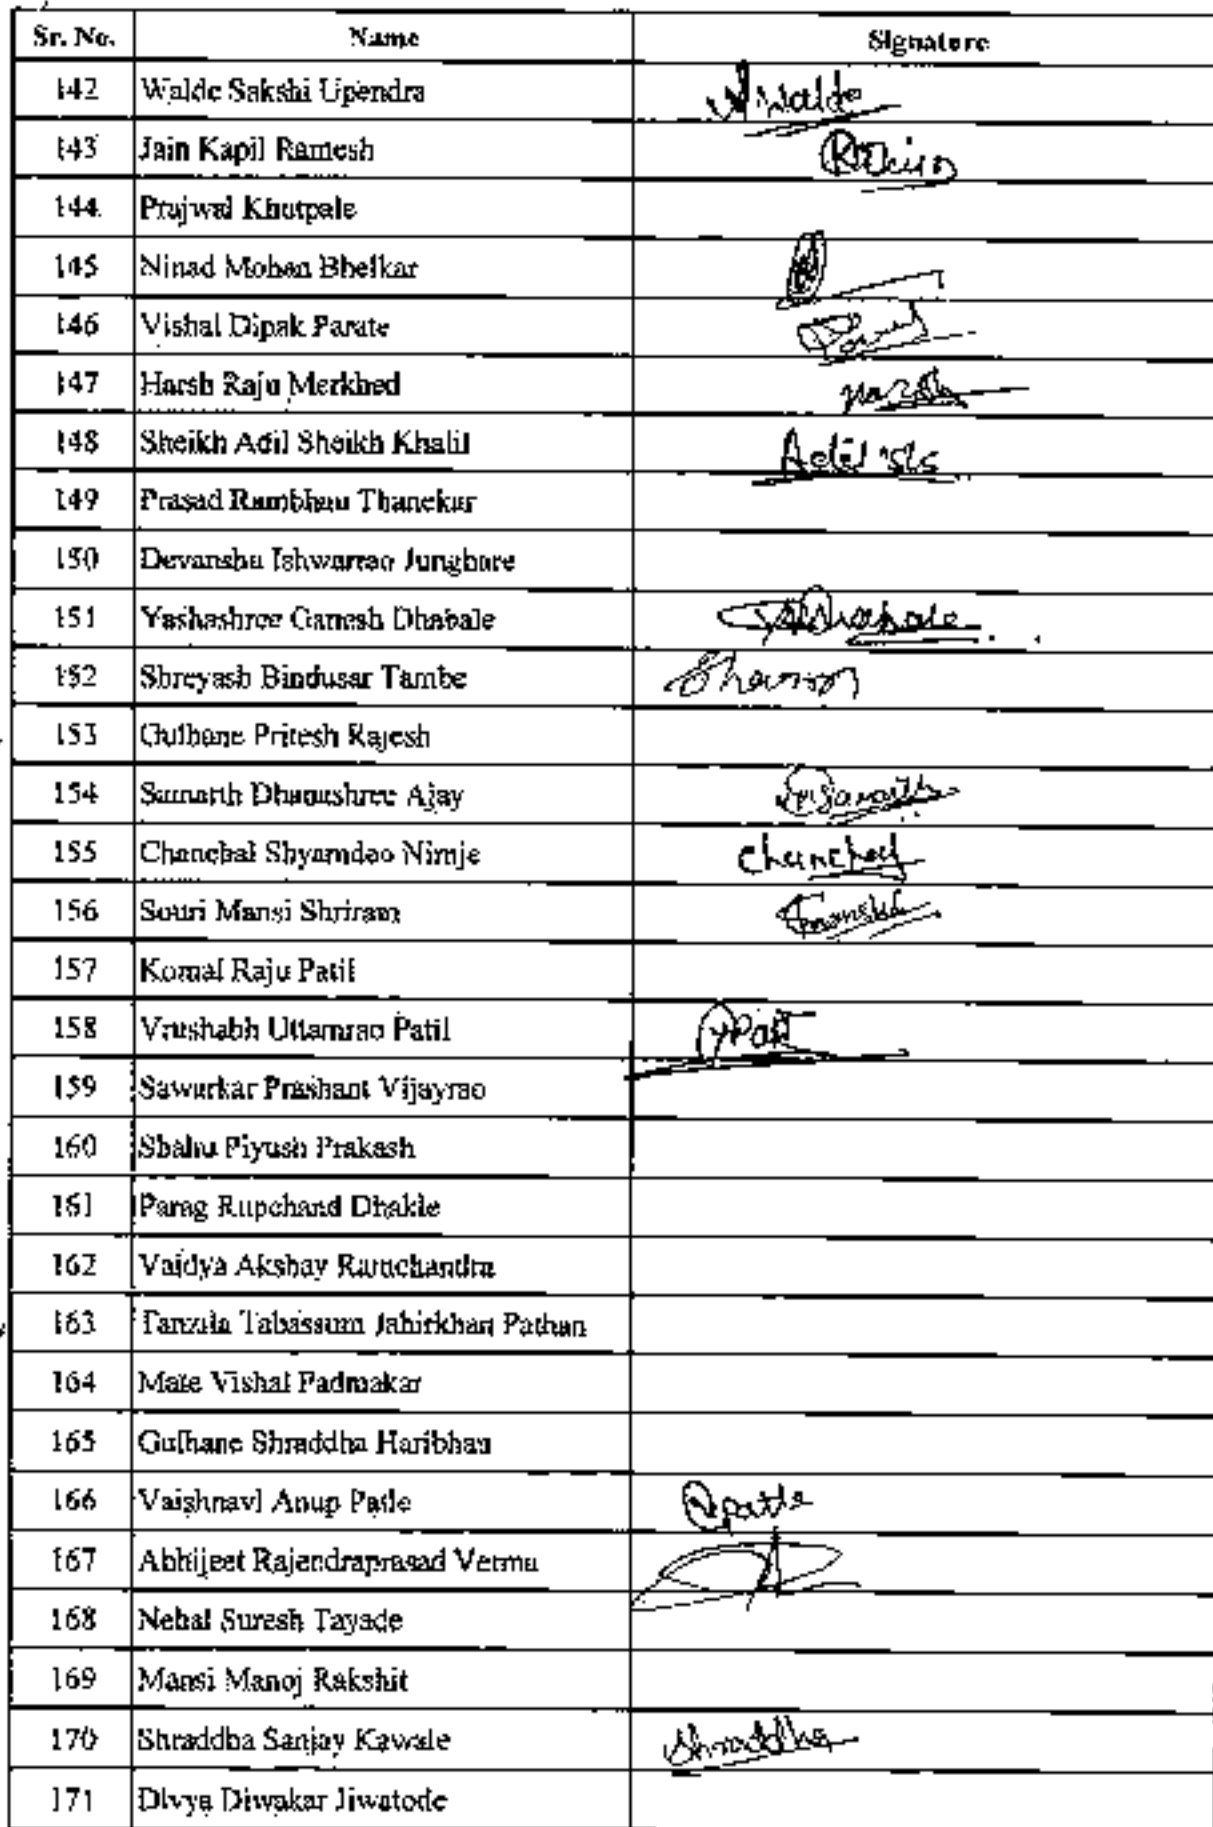 Sr. No. Name Signature
142 Walde Sakshi Upendra Walde
143 Jain Kapil Ramesh
144 Prajwal Khutpale
145 Ninad Mohan Bhelkar
146 Vishal Dipak Parate
147 Harsh Raju Merkhed
148 Sheikh Adil Sheikh Khalil
149 Prasad Rambhau Thanekar
150 Devanshu Ishwarrao Junghare
151 Yashashree Ganesh Dhabale
152 Shreyash Bindusar Tambe
153 Gulhane Pritesh Rajesh
154 Samarth Dhanashree Ajay
155 Chanchal Shyamdeo Nimje Chanchal
156 Souri Mansi Shriram
157 Komal Raju Patil
158 Vrushabh Uttamrao Patil
159 Sawurkar Prashant Vijayrao
160 Shahu Piyush Prakash
161 Parag Rupchand Dhakle
162 Vaidya Akshay Ramchandra
163 Tanzila Tabassum Jahirkhan Pathan
164 Mate Vishal Padmakar
165 Gulhane Shraddha Haribhau
166 Vaishnavi Anup Patle
167 Abhijeet Rajendraprasad Verma
168 Nehal Suresh Tayade
169 Mansi Manoj Rakshit
170 Shraddha Sanjay Kawale Shraddha
171 Divya Diwakar Jiwatode